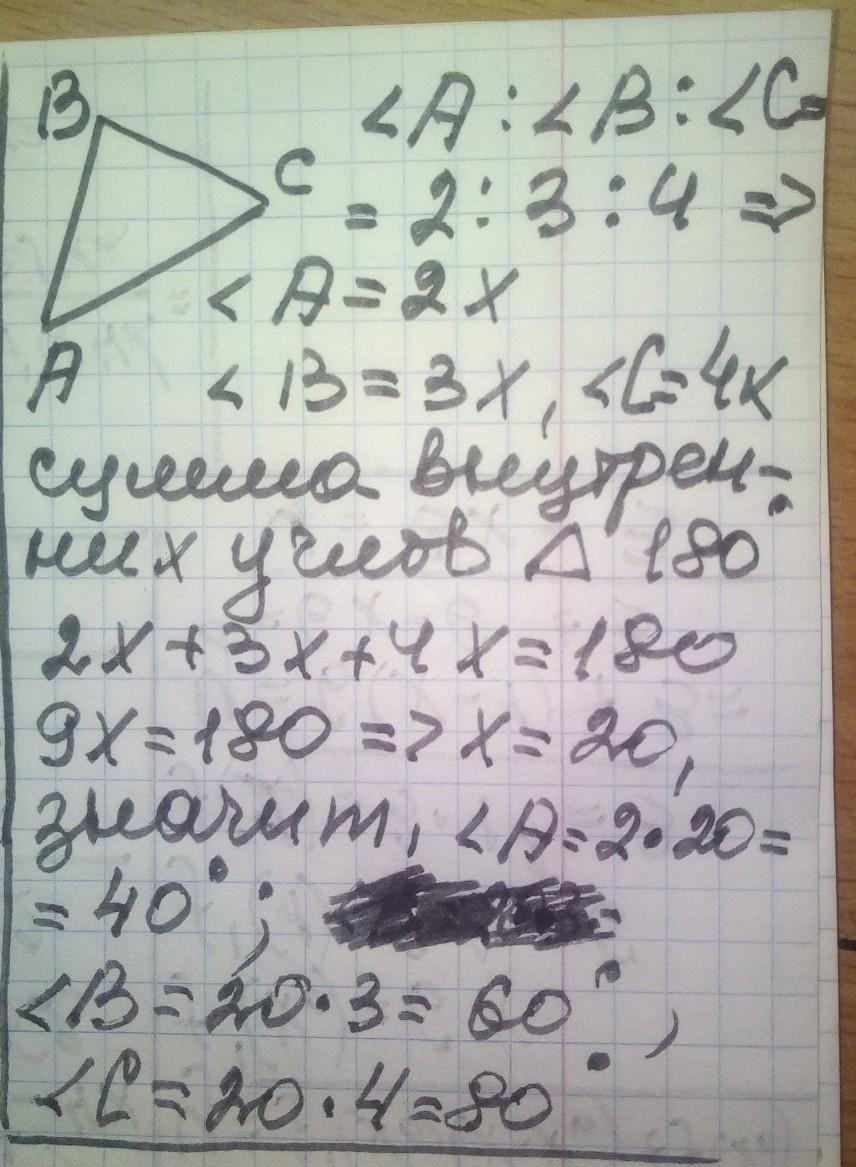 B
C
A
<A : <B : <C =
= 2 : 3 : 4 =>
<A = 2x
<B = 3x, <C = 4x
сумма внутрен-
них углов Δ 180°
2x + 3x + 4x = 180
9x = 180 => x = 20,
значит, <A = 2 · 20 =
= 40°;
<B = 20 · 3 = 60°,
<C = 20 · 4 = 80°